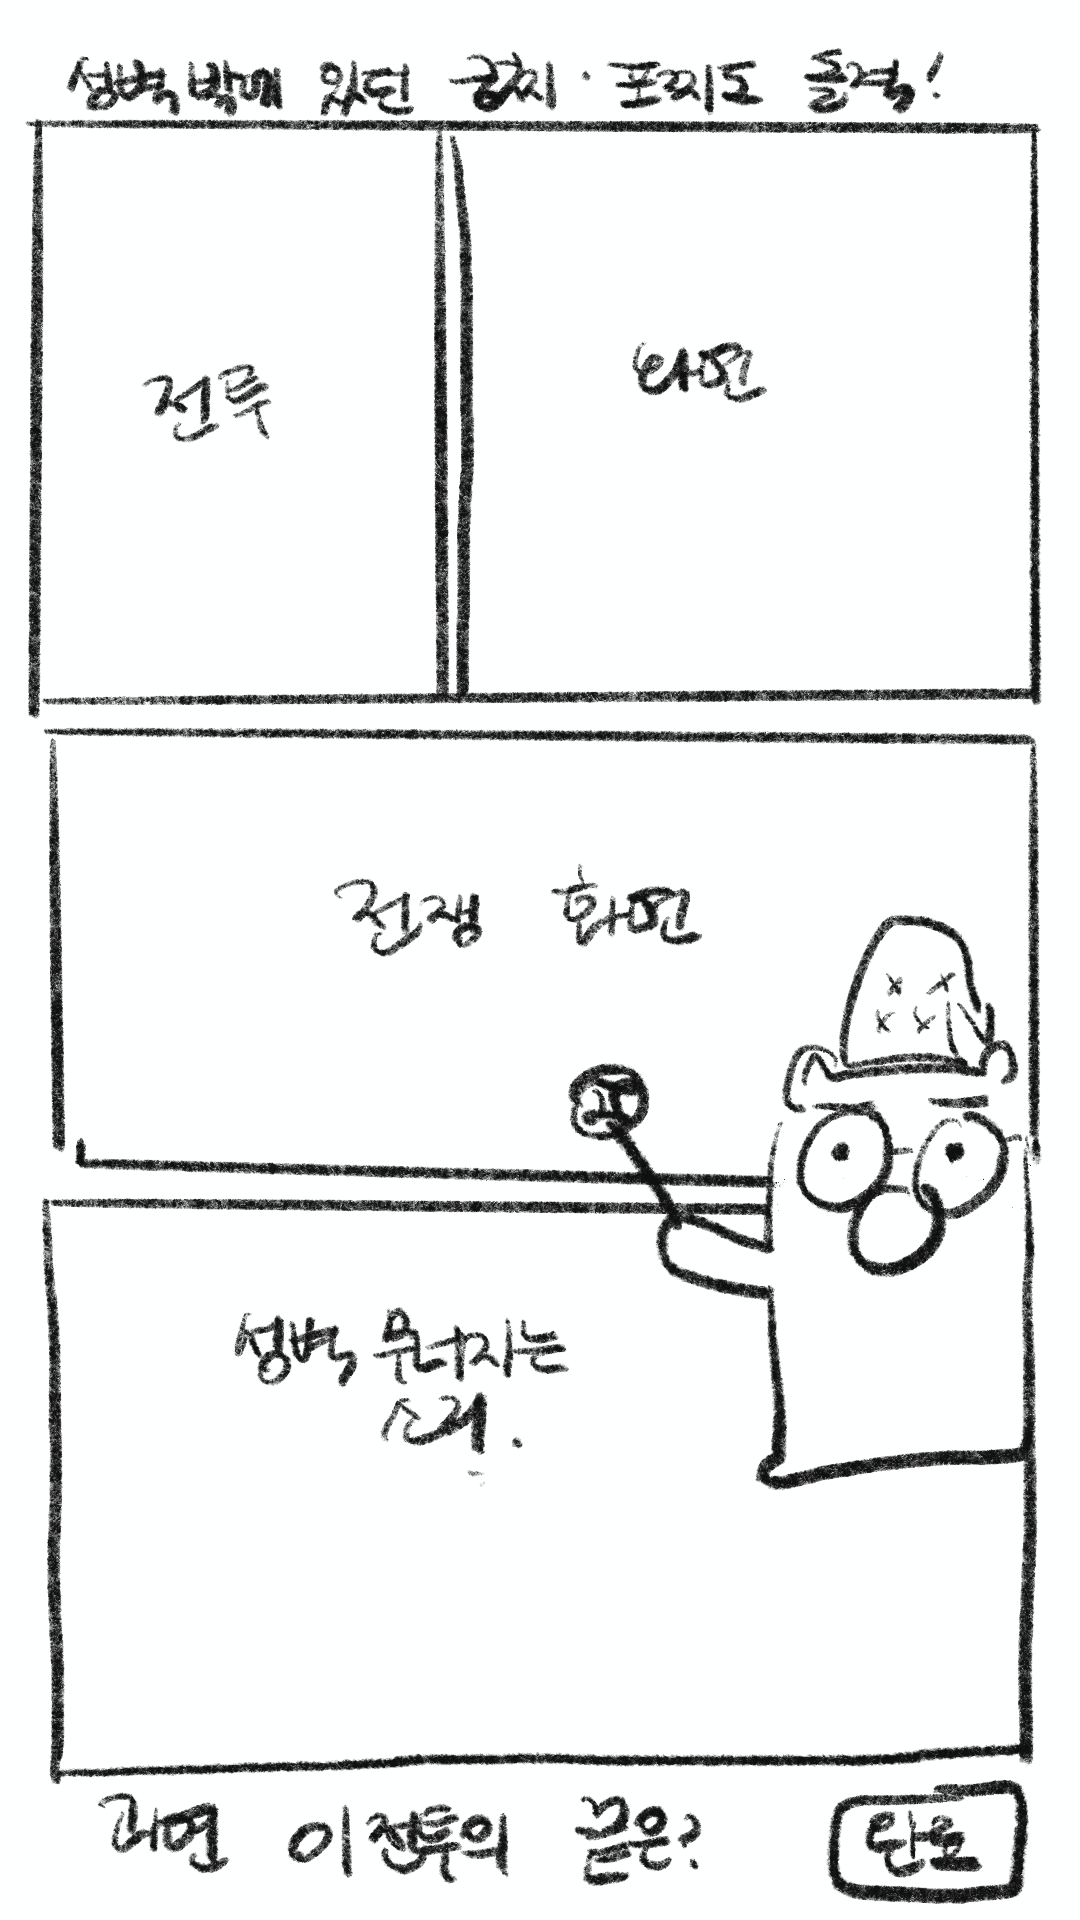 성벽 밖에 있던 뭉치·포찌도 돌격!
전투
화면
전쟁 화면
성벽 무너지는
소리.
과연 이 전투의 끝은?
완료